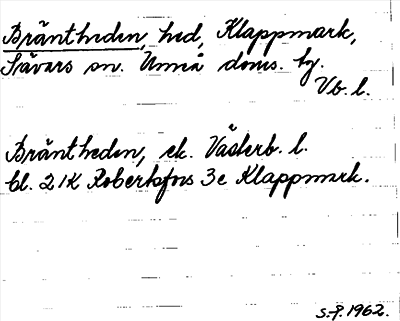 Bräntheden, hed, Klappmark,
Sävars sn. Umeå doms. hg.
Vb. l.
Bräntheden, ek. Västerb. l.
bl. 21K Robertsfors 3e Klappmark.
S.P. 1962.